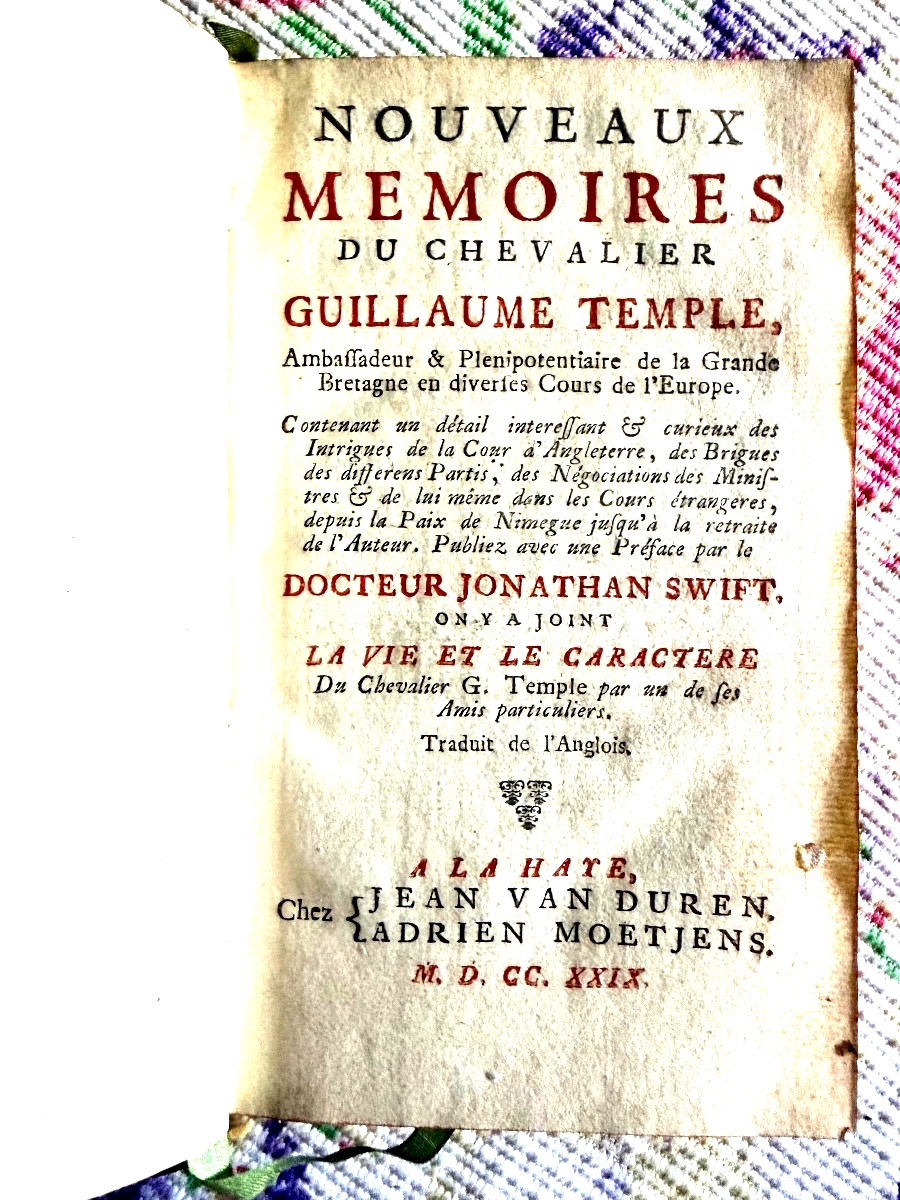 NOUVEAUX
MEMOIRES
DU CHEVALIER
GUILLAUME TEMPLE,
Ambaſſadeur & Plenipotentiaire de la Grande
Bretagne en diverſes Cours de l'Europe.
Contenant un détail intereſſant & curieux des
Intrigues de la Cour d'Angleterre, des Brigues
des differens Partis, des Négociations des Miniſ-
tres & de lui même dans les Cours étrangeres,
depuis la Paix de Nimegue juſqu'à la retraite
de l'Auteur. Publiez avec une Préface par le
DOCTEUR JONATHAN SWIFT.
ON Y A JOINT
LA VIE ET LE CARACTERE
Du Chevalier G. Temple par un de ſes
Amis particuliers.
Traduit de l'Anglois.
A LA HAYE,
Chez { JEAN VAN DUREN.
ADRIEN MOETJENS.
M. D. CC. XXIX.